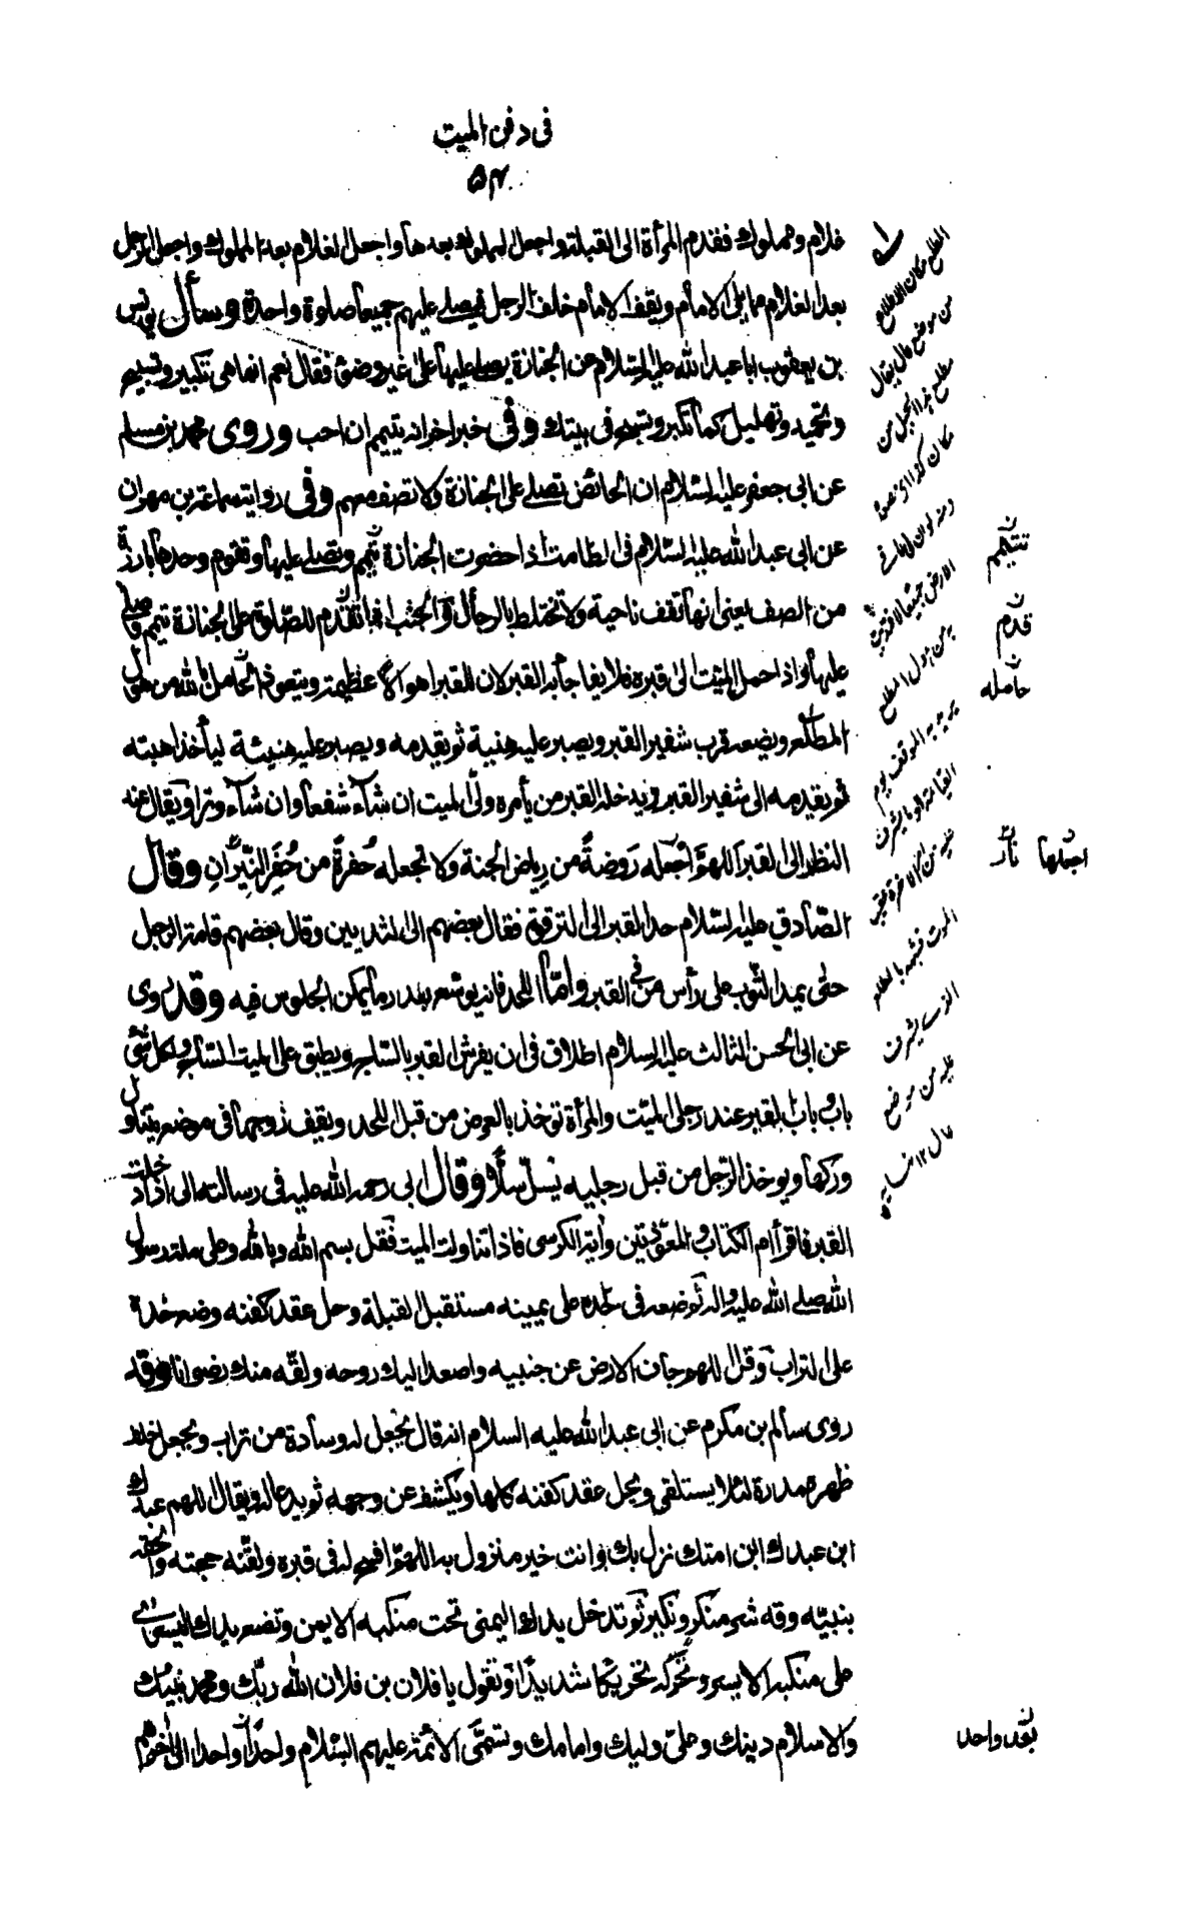 فى دفن الميت
۵۴
غلام ومملوك فقدم المرأة الى القبلة واجعل المملوك بعدها واجعل الغلام بعد المملوك واجعل الرجل
بعد الغلام مما يلى الامام ويقف الامام خلف الرجل فيصلے عليهم جميعا صلوة واحدة وسأل يونس
بن يعقوب ابا عبد الله عليه السلام عن الجنازة يصلے عليها على غير وضوء فقال نعم انما هى تكبير وتسبيح
وتحميد وتهليل كما تكبر وتسبح فى بيتك وفى خبر اخر انه يتيمم ان احب وروى محمد بن مسلم
عن ابى جعفر عليه السلام ان الحائض تصلے على الجنازة ولا تصف معهم وفى رواية سماعة بن مهران
عن ابى عبد الله عليه السلام فى الطامث اذا حضرت الجنازة تيمم وتصلے عليها وتقوم وحدها بارزة
من الصف يعنى انها تقف ناحية ولا تختلط بالرجال والجنب اذا تقدم للصلوة على الجنازة تيمم وصلے
عليها واذا حمل الميت الى قبره فلا يفاجأ به القبر لان للقبر اهوالا عظيمة ويتعوذ الحامل بالله من هول
المطلع ويضعه قرب شفير القبر ويصبر عليه هنيئة ثم يقدمه ويصبر عليه هنيئة ليأخذ اهبته
ثم يقدمه الى شفير القبر ويدخله القبر من يأمره ولى الميت ان شاء شفعا وان شاء وترا ويقال عند
النظر الى القبر اللهم اجعله روضة من رياض الجنة ولا تجعله حفرة من حفر النيران وقال
الصادق عليه السلام حد القبر الى الترقوة فقال بعضهم الى الثديين وقال بعضهم قامة الرجل
حتى يمد الثوب على رأس من فى القبر واما اللحد فانه يوسع بقدر ما يمكن الجلوس فيه وقد روى
عن ابى الحسن الثالث عليه السلام اطلاق فى ان يفرش القبر بالساج ويطبق على الميت الساج ولكل شئ
باب وباب القبر عند رجلى الميت والمرأة توخذ بالعرض من قبل اللحد ويقف زوجها فى موضع يتناول
وركها ويوخذ الرجل من قبل رجليه يسل سلا وقال ابى رحمه الله عليه فى رسالته الى اذا دخلت
القبر فاقرأ ام الكتاب والمعوذتين واية الكرسى فاذا تناولت الميت فقل بسم الله وبالله وعلى ملة رسول
الله صلے الله عليه واله ثم ضعه فى لحده على يمينه مستقبل القبلة وحل عقد كفنه وضع خده
على التراب وقل اللهم جاف الارض عن جنبيه واصعد اليك روحه ولقه منك رضوانا وقد
روى سالم بن مكرم عن ابى عبد الله عليه السلام انه قال يجعل له وسادة من تراب ويجعل خلف
ظهره مدرة لئلا يستلقى ويحل عقد كفنه كلها ويكشف عن وجهه ثم يدعا له ويقال اللهم عبدك
ابن عبدك ابن امتك نزل بك وانت خير منزول به اللهم افسح له فى قبره ولقنه حجته والحقه
بنبيه وقه شر منكر ونكير ثم تدخل يدك اليمنى تحت منكبه الايمن وتضع يدك اليسرى
على منكبه الايسر وتحركه تحريكا شديدا وتقول يا فلان بن فلان الله ربك ومحمد نبيك
والاسلام دينك وعلى وليك وامامك وتسمى الائمة عليهم السلام واحدا واحدا الى اخرهم
المطلع مكان الاطلاع
من موضع عال يقال
مطلع هذا الجبل من
مكان كذا اى
الارض جميعا لافتديت
به من هول المطلع
يريد به الموقف يوم
القيامة او ما يشرف
عليه من امر الاخرة عقيب
الموت فشبهه بالمطلع
الذى يشرف
عليه من موضع
عال ۱۲
تتيمم
قدم
حامله
اجعلها
نار
بعد واحد